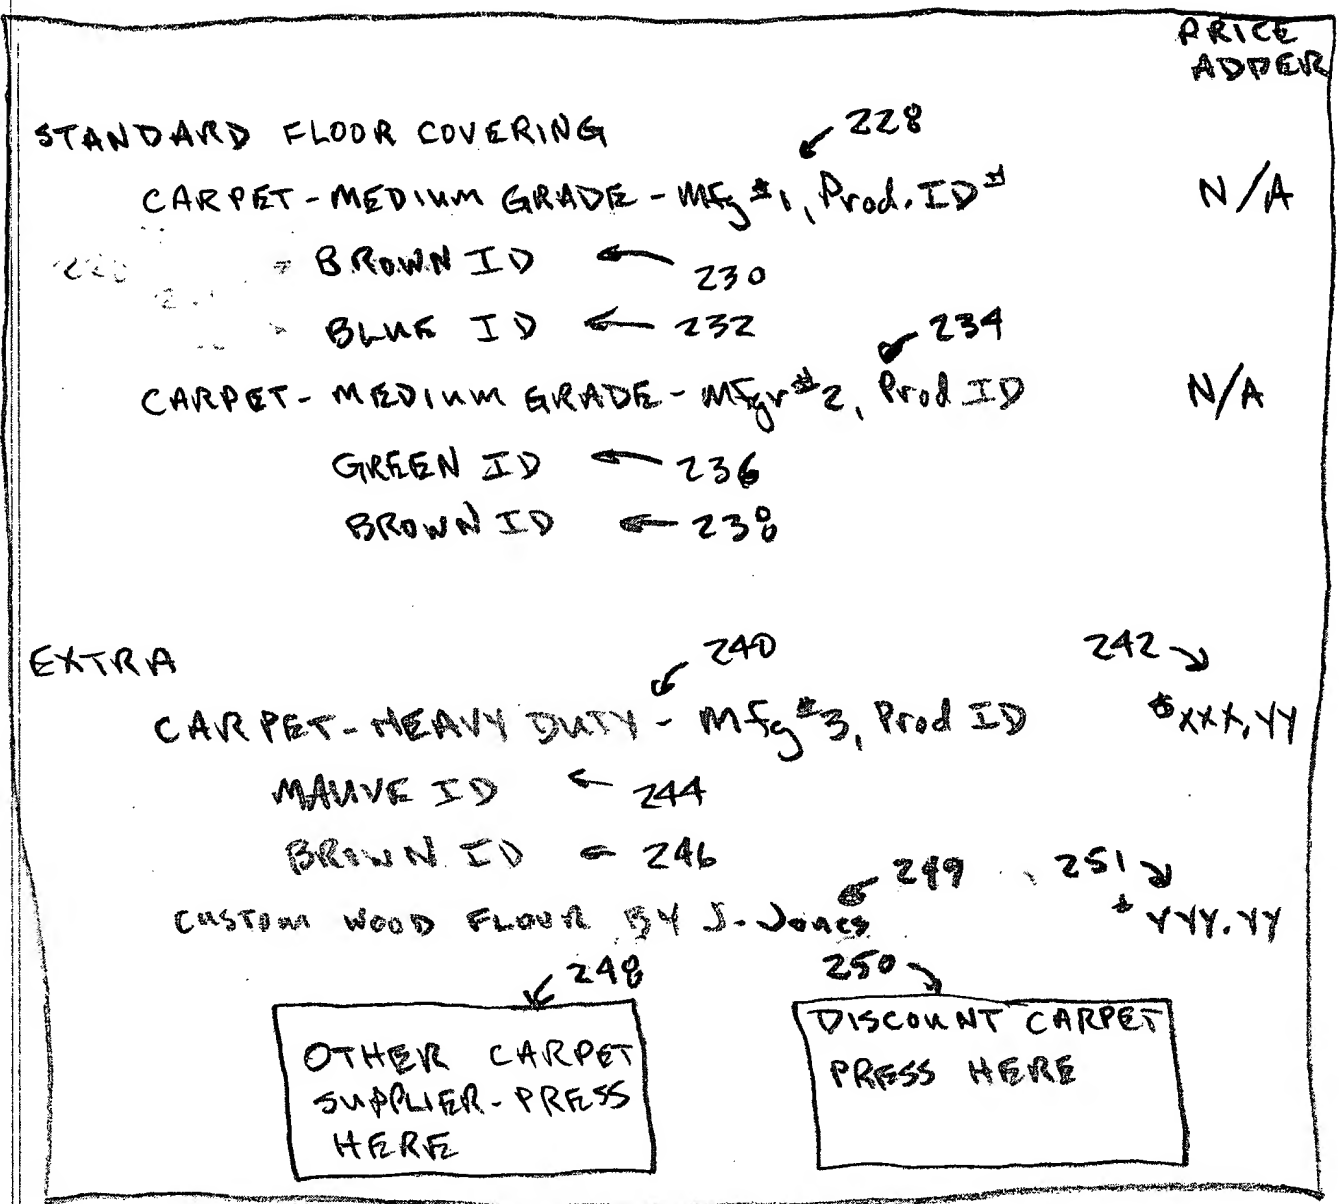 PRICE
ADDER
STANDARD FLOOR COVERING
228
CARPET-MEDIUM GRADE-Mfg #1, Prod. ID# N/A
BROWN ID
230
BLUE ID 232
234
CARPET-MEDIUM GRADE-Mfgr#2, Prod ID N/A
GREEN ID 236
BROWN ID 238
EXTRA 240 242
CARPET-HEAVY DUTY-Mfg#3, Prod ID $XXX,YY
MAUVE ID 244
BROWN ID 246
249 251
CUSTOM WOOD FLOOR BY J. Jones $YYY.YY
248 250
OTHER CARPET
SUPPLIER-PRESS
HERE
DISCOUNT CARPET
PRESS HERE